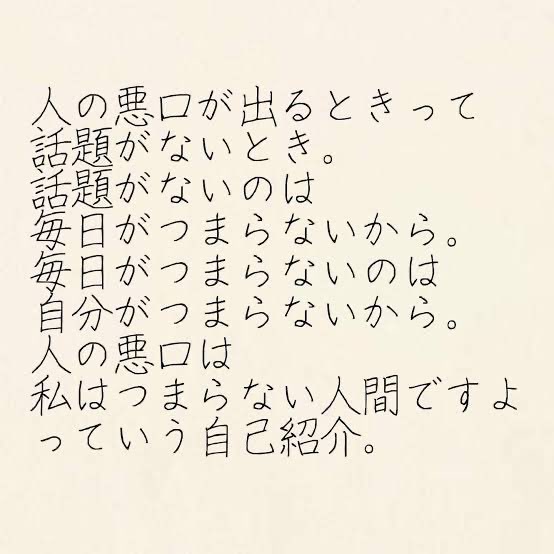 人の悪口が出るときって
話題がないとき。
話題がないのは
毎日がつまらないから。
毎日がつまらないのは
自分がつまらないから。
人の悪口は
私はつまらない人間ですよ
っていう自己紹介。